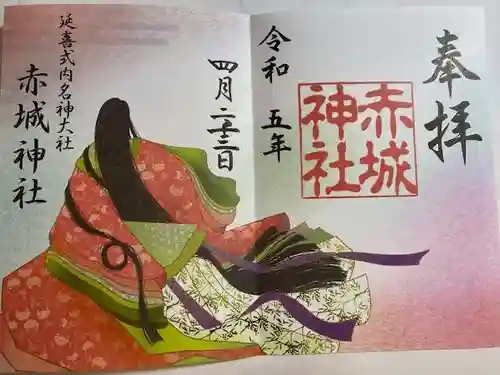 奉拝
赤城
神社
令和 五年
四月二十三日
延喜式内名神大社
赤城神社